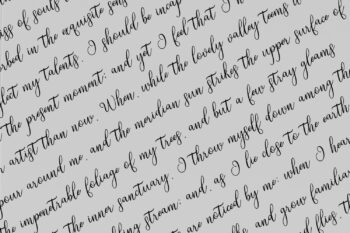 ess of souls
rbed in the exquisite sens
glect my talents. I should be incap
the present moment; and yet I feel that I n
artist than now. When, while the lovely valley teems w
pour around me, and the meridian sun strikes the upper surface of
the impenetrable foliage of my trees, and but a few stray gleams
the inner sanctuary, I throw myself down among the
ling stream; and, as I lie close to the earth
are noticed by me: when I hear
and grow familiar
flies,